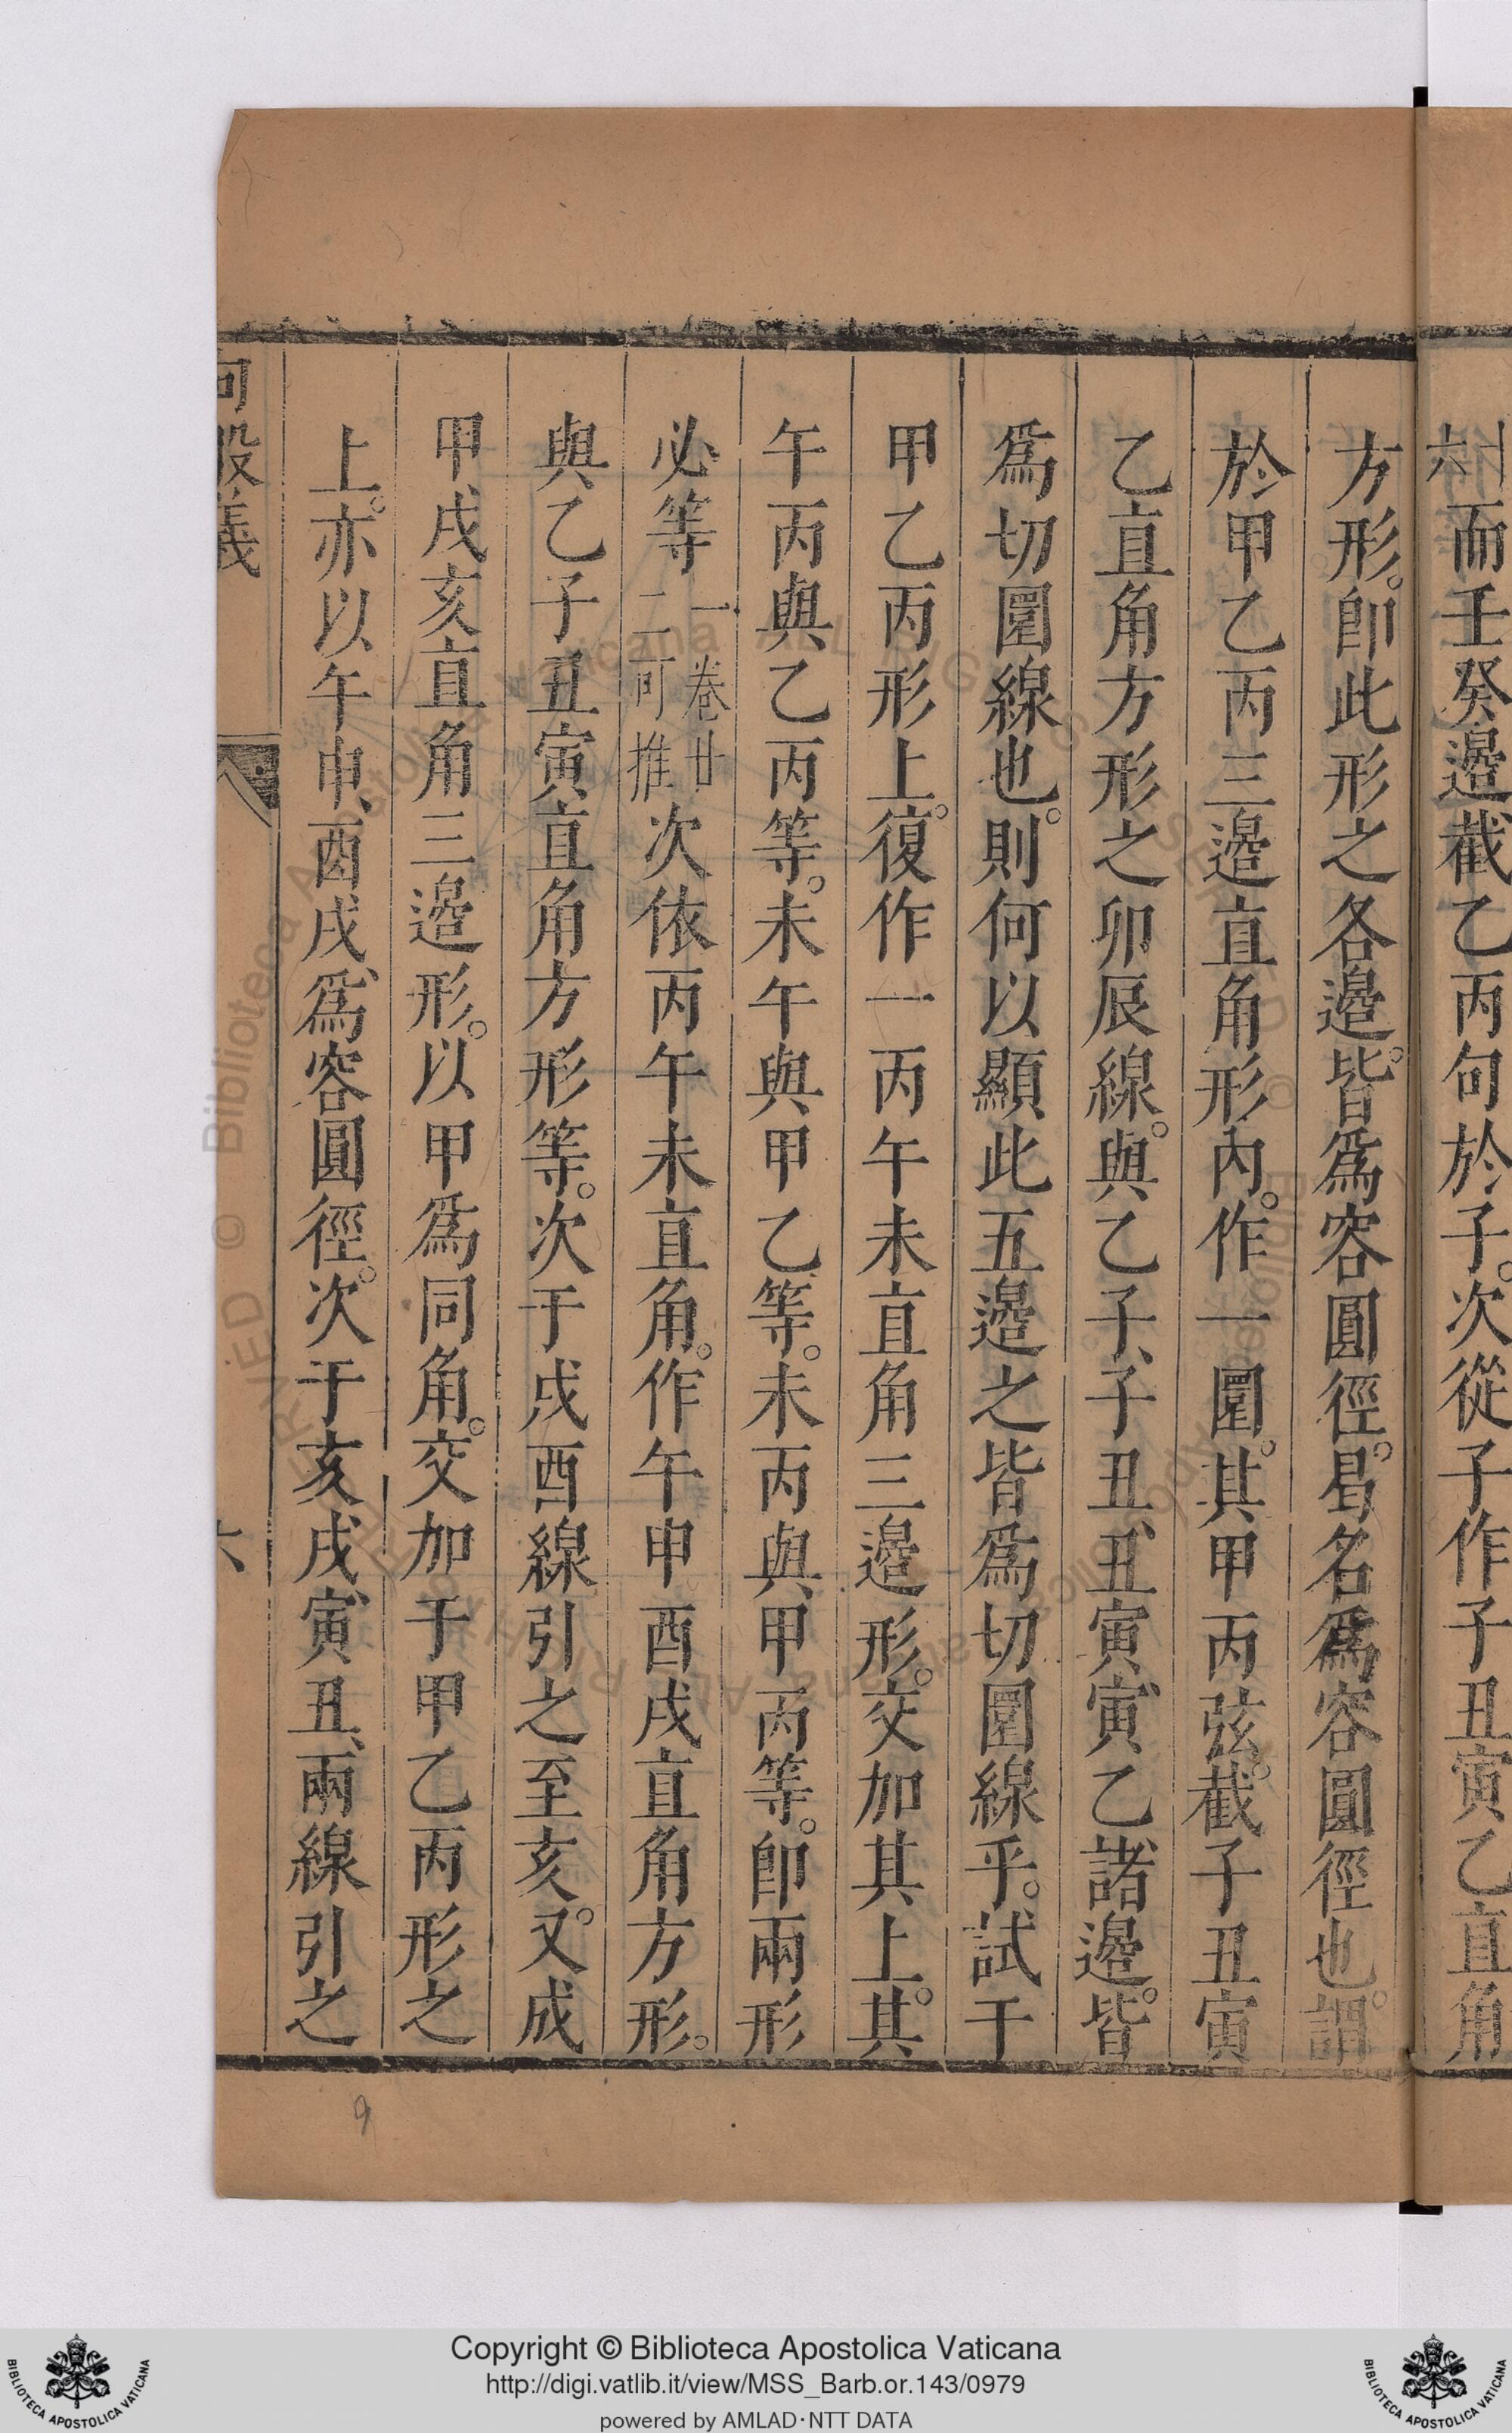 六而壬癸邊截乙丙句於子。次從子作子丑寅乙直角
方形。卽此形之各邊。皆爲容圓徑。曷名爲容圓徑也。謂
於甲乙丙三邊直角形內。作一圜。其甲丙弦。截子丑寅
乙直角方形之卯辰線。與乙子、子丑、丑寅、寅乙諸邊。皆
爲切圜線也。則何以顯此五邊之皆爲切圜線乎。試于
甲乙丙形上。復作一丙午未直角三邊形。交加其上。其
午丙與乙丙等。未午與甲乙等。未丙與甲丙等。卽兩形
必等一卷廿二可推次依丙午未直角。作午申酉戌直角方形。
與乙子丑寅直角方形等。次于戌酉線引之至亥。又成
甲戌亥直角三邊形。以甲爲同角。交加于甲乙丙形之
上。亦以午申、酉戌、爲容圓徑。次于亥戌、寅丑、兩線引之
句股義
六
9
Copyright © Biblioteca Apostolica Vaticana
http://digi.vatlib.it/view/MSS_Barb.or.143/0979
powered by AMLAD·NTT DATA
BIBLIOTECA APOSTOLICA VATICANA
BIBLIOTECA APOSTOLICA VATICANA